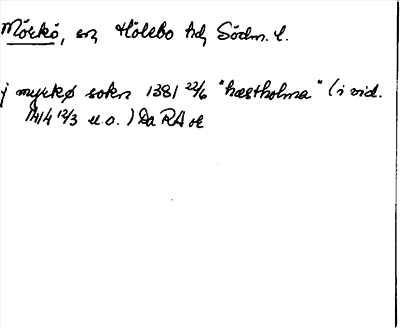 Mörkö, sn, Hölebo hd, Södm. l.
j myrkø sokn 1381 22/6 "hæstholma" (i vid.
1414 12/3 u.o.) Da RA or